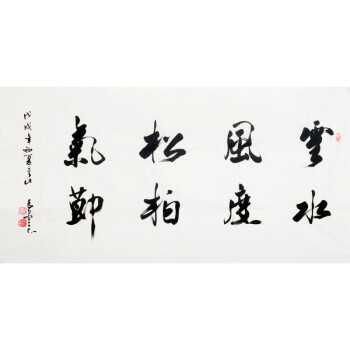 雲水
風度
松柏
氣節
戊戌年初夏